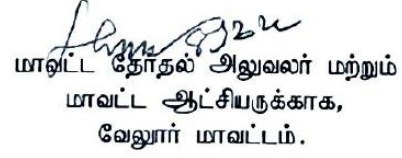 மாவட்ட தேர்தல் அலுவலர் மற்றும்
மாவட்ட ஆட்சியருக்காக,
வேலூர் மாவட்டம்.